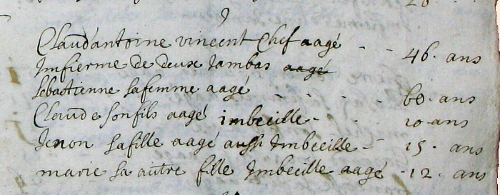 Claudantoine vincent Chef aagé - - 46. ans
Imfierme de deux Jambas aagé
Sebastienne sa femme aagé - - 60. ans
Claude son fils aagé imbecille - - 20 ans
Jenon sa fille aagé aussi Imbecille - 15. ans
marie sa autre fille Imbecille aagé - 12. ans